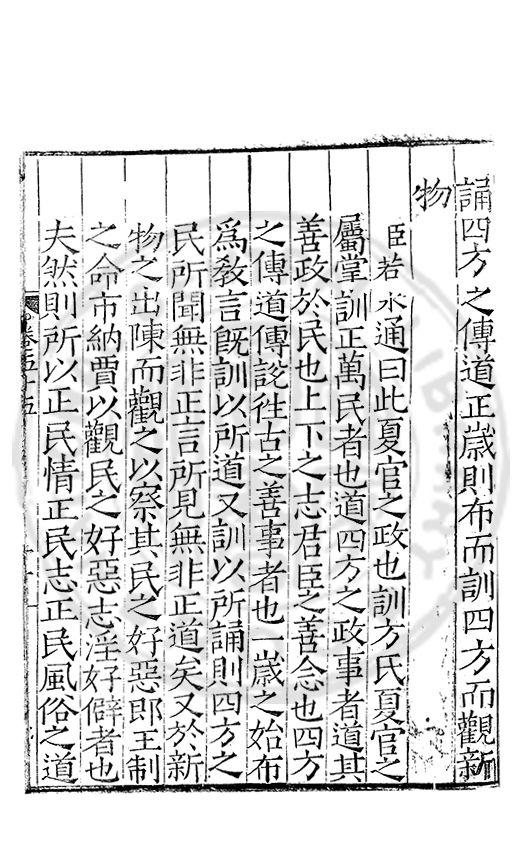 誦四方之傳道正歲則布而訓四方而觀新
物
臣若水通曰此夏官之政也訓方氏夏官之
屬掌訓正萬民者也道四方之政事者道其
善政於民也上下之志君臣之善念也四方
之傳道傳說徃古之善事者也一歲之始布
爲敎言旣訓以所道又訓以所誦則四方之
民所聞無非正言所見無非正道矣又於新
物之出陳而觀之以察其民之好惡即王制
之命市納賈以觀民之好惡志淫好僻者也
夫然則所以正民情正民志正民風俗之道
卷五十五